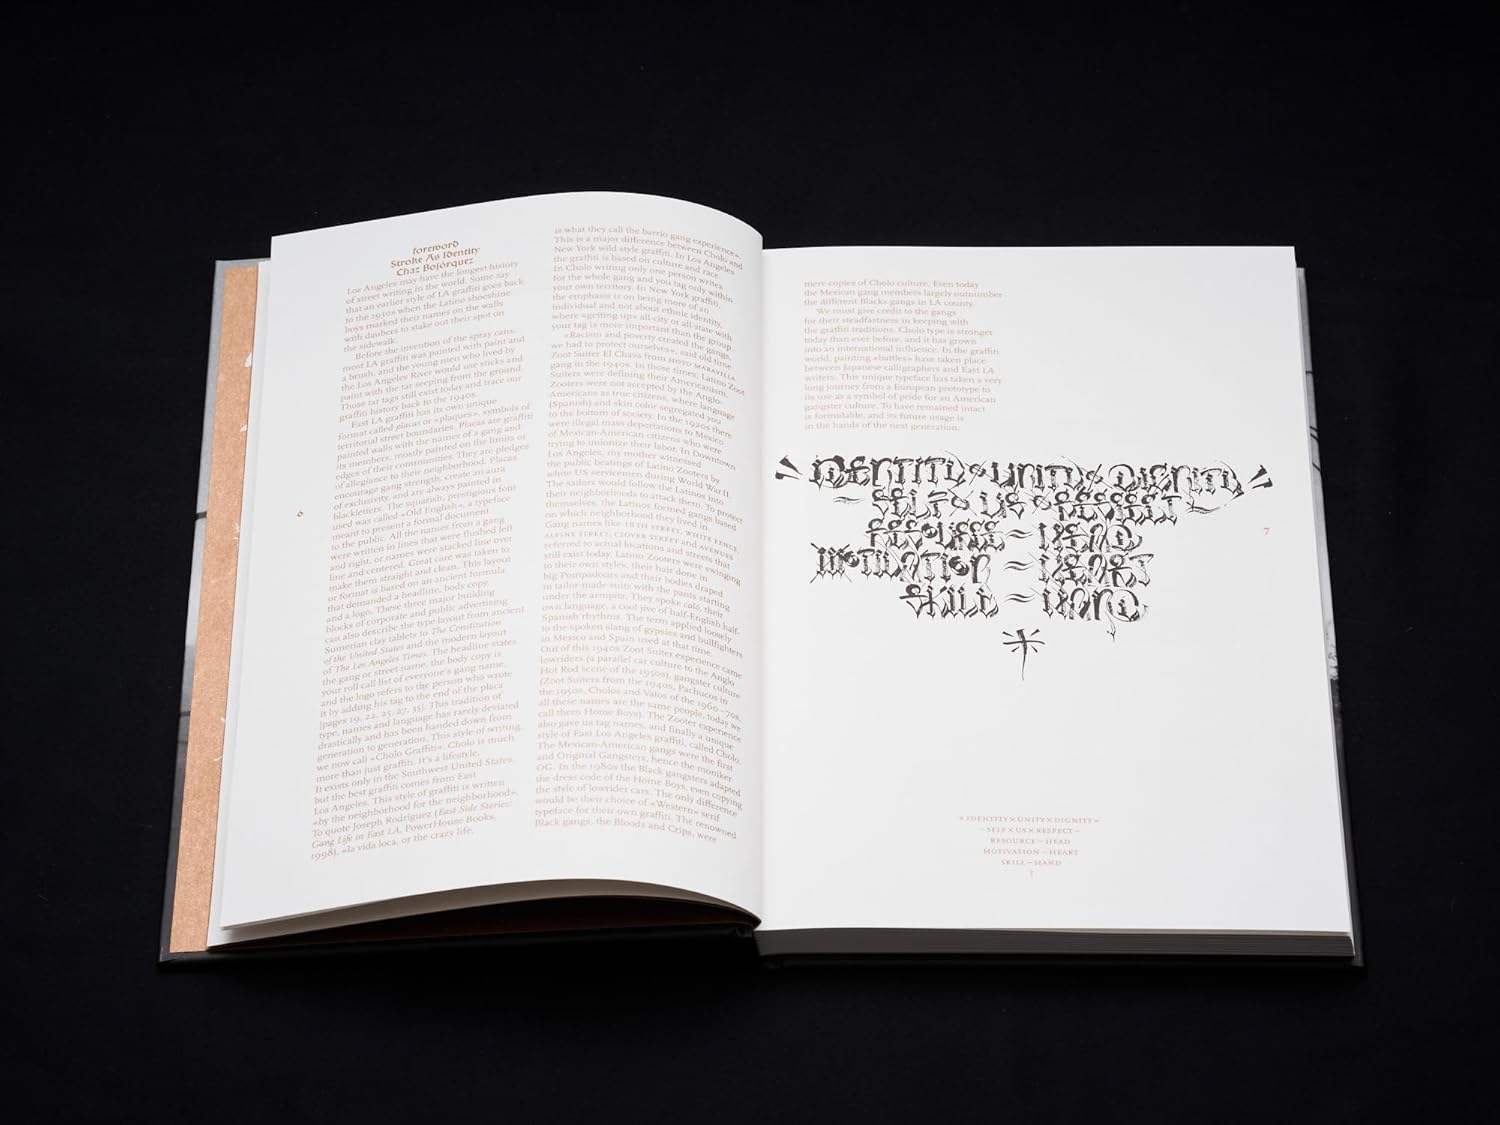 foreword
Stroke As Identity
Chaz Bojórquez
Los Angeles may have the longest history
of street writing in the world. Some say
that an earlier style of LA graffiti goes back
to the 1930s when the Latino shoeshine
boys marked their names on the walls
with daubers to stake out their spot on
the sidewalk.
Before the invention of the spray cans,
most LA graffiti was painted with paint and
a brush, and the young men who lived by
the Los Angeles River would use sticks and
paint with the tar seeping from the ground.
Those tar tags still exist today and trace our
graffiti history back to the 1940s.
East LA graffiti has its own unique
format called placas or «plaques», symbols of
territorial street boundaries. Placas are graffiti
painted walls with the names of a gang and
its members, mostly painted on the limits or
edges of their communities. They are pledges
of allegiance to their neighborhood. Placas
encourage gang strength, create an aura
of exclusivity, and are always painted in
blackletters. The squarish, prestigious font
used was called «Old English», a typeface
meant to present a formal document
to the public. All the names from a gang
were written in lines that were flushed left
and right, or names were stacked line over
line and centered. Great care was taken to
make them straight and clean. This layout
or format is based on an ancient formula
that demanded a headline, body copy,
and a logo. These three major building
blocks of corporate and public advertising
can also describe the type layout from ancient
Sumerian clay tablets to The Constitution
of the United States and the modern layout
of The Los Angeles Times. The headline states
the gang or street name, the body copy is
your roll call list of everyone's gang name,
and the logo refers to the person who wrote
it by adding his tag to the end of the placa
(pages 19, 22, 25, 27, 35). This tradition of
type, names and language has rarely deviated
drastically and has been handed down from
generation to generation. This style of writing,
we now call «Cholo Graffiti». Cholo is much
more than just graffiti. It's a lifestyle,
It exists only in the Southwest United States,
but the best graffiti comes from East
Los Angeles. This style of graffiti is written
«by the neighborhood for the neighborhood».
To quote Joseph Rodríguez (East Side Stories:
Gang Life in East LA, PowerHouse Books,
1998), «la vida loca, or the crazy life,
6
is what they call the barrio gang experience».
This is a major difference between Cholo and
New York wild style graffiti. In Los Angeles
the graffiti is based on culture and race.
In Cholo writing only one person writes
for the whole gang and you tag only within
your own territory. In New York graffiti,
the emphasis is on being more of an
individual and not about ethnic identity,
where «getting up» all-city or all-state with
your tag is more important than the group.
«Racism and poverty created the gangs,
we had to protect ourselves», said old time
Zoot Suiter El Chava from HOYO MARAVILLA
gang in the 1940s. In those times, Latino Zoot
Suiters were defining their Americanism.
Zooters were not accepted by the Anglo-
Americans as true citizens, where language
(Spanish) and skin color segregated you
to the bottom of society. In the 1920s there
were illegal mass deportations to Mexico
of Mexican-American citizens who were
trying to unionize their labor. In Downtown
Los Angeles, my mother witnessed
the public beatings of Latino Zooters by
white US servicemen during World War II.
The sailors would follow the Latinos into
their neighborhoods to attack them. To protect
themselves, the Latinos formed gangs based
on which neighborhood they lived in.
Gang names like 18TH STREET, WHITE FENCE,
ALPINE STREET, CLOVER STREET and AVENUES
referred to actual locations and streets that
still exist today. Latino Zooters were swinging
to their own styles, their hair done in
big Pompadours and their bodies draped
in tailor-made suits with the pants starting
under the armpits. They spoke calo, their
own language, a cool jive of half-English half-
Spanish rhythms. The term applied loosely
to the spoken slang of gypsies and bullfighters
in Mexico and Spain used at that time.
Out of this 1940s Zoot Suiter experience came
lowriders (a parallel car culture to the Anglo
Hot Rod scene of the 1950s), gangster culture
(Zoot Suiters from the 1940s, Pachucos in
the 1950s, Cholos and Vatos of the 1960–70s,
all these names are the same people, today we
call them Home Boys). The Zooter experience
also gave us tag names, and finally a unique
style of East Los Angeles graffiti, called Cholo.
The Mexican-American gangs were the first
and Original Gangsters, hence the moniker
OG. In the 1980s the Black gangsters adapted
the dress code of the Home Boys, even copying
the style of lowrider cars. The only difference
would be their choice of «Western» serif
typeface for their own graffiti. The renowned
Black gangs, the Bloods and Crips, were
mere copies of Cholo culture. Even today
the Mexican gang members largely outnumber
the different Blacks gangs in LA county.
We must give credit to the gangs
for their steadfastness in keeping with
the graffiti traditions. Cholo type is stronger
today than ever before, and it has grown
into an international influence. In the graffiti
world, painting «battles» have taken place
between Japanese calligraphers and East LA
writers. This unique typeface has taken a very
long journey from a European prototype to
its use as a symbol of pride for an American
gangster culture. To have remained intact
is formidable, and its future usage is
in the hands of the next generation.
IDENTITY × UNITY × DIGNITY
~ SELF × US × RESPECT
RESOURCE ~ HEAD
MOTIVATION ~ HEART
SKILL ~ HAND
7
× IDENTITY × UNITY × DIGNITY ×
~ SELF × US × RESPECT ~
RESOURCE ~ HEAD
MOTIVATION ~ HEART
SKILL ~ HAND